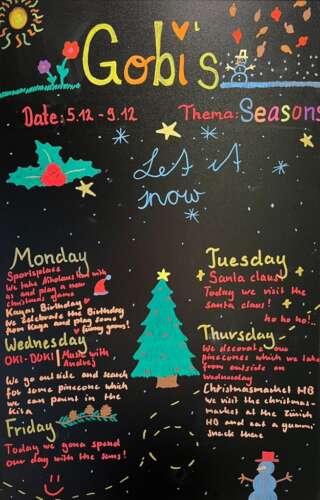 Gobi's
Date: 5.12 - 9.12
Thema: Seasons
Let it
snow
Monday
Sportsplaces
We take Nikolaus Hut with
us and play a new
christmas game
Kayas Birthday
We celebrate the Birthday
from Kaya and play some
funny games!
Wednesday
OKI-DOKI | Music with
Andrej
We go outside and search
for some pinecone which
we can paint in the
Kita
Friday
Today we gona spend
our day with the sims!
Tuesday
Santa claus
Today we visit the
santa claus!
ho ho ho!..
Thursday
We decorate our
pinecones which we take
from outside on
Wednesday
Christmasmarket HB
we visit the christmas-
market at the Zürich
HB and eat a yummi
snack there